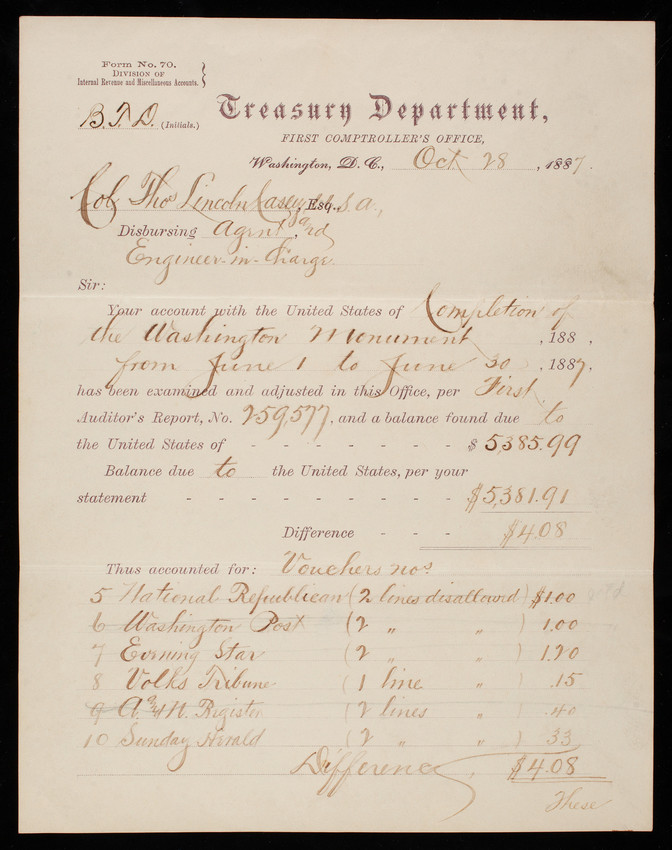 Form No. 70.
Division of
Internal Revenue and Miscellaneous Accounts.
B.T.D. (Initials.)
Treasury Department,
FIRST COMPTROLLER'S OFFICE,
Washington, D. C., Oct 28, 1887.
Col Thos Lincoln Casey, Esq., U.S.A.,
Disbursing Agent, and
Engineer-in-Charge
Sir:
Your account with the United States of Completion of
the Washington Monument, 188 ,
from June 1 to June 30, 1887,
has been examined and adjusted in this Office, per First
Auditor's Report, No. 259,577, and a balance found due to
the United States of - - - - - - - $ 5,385.99
Balance due to the United States, per your
statement - - - - - - - - $5,381.91
Difference - - - $4.08
Thus accounted for: Vouchers nos.
5 National Republican (2 lines disallowed) $1.00
6 Washington Post (2 " " ) 1.00
7 Evening Star (2 " " ) 1.20
8 Volks Tribune (1 line " ) .15
9 A. & N. Register (2 lines " ) .40
10 Sunday Herald (2 " " ) 33
Difference, $4.08
These